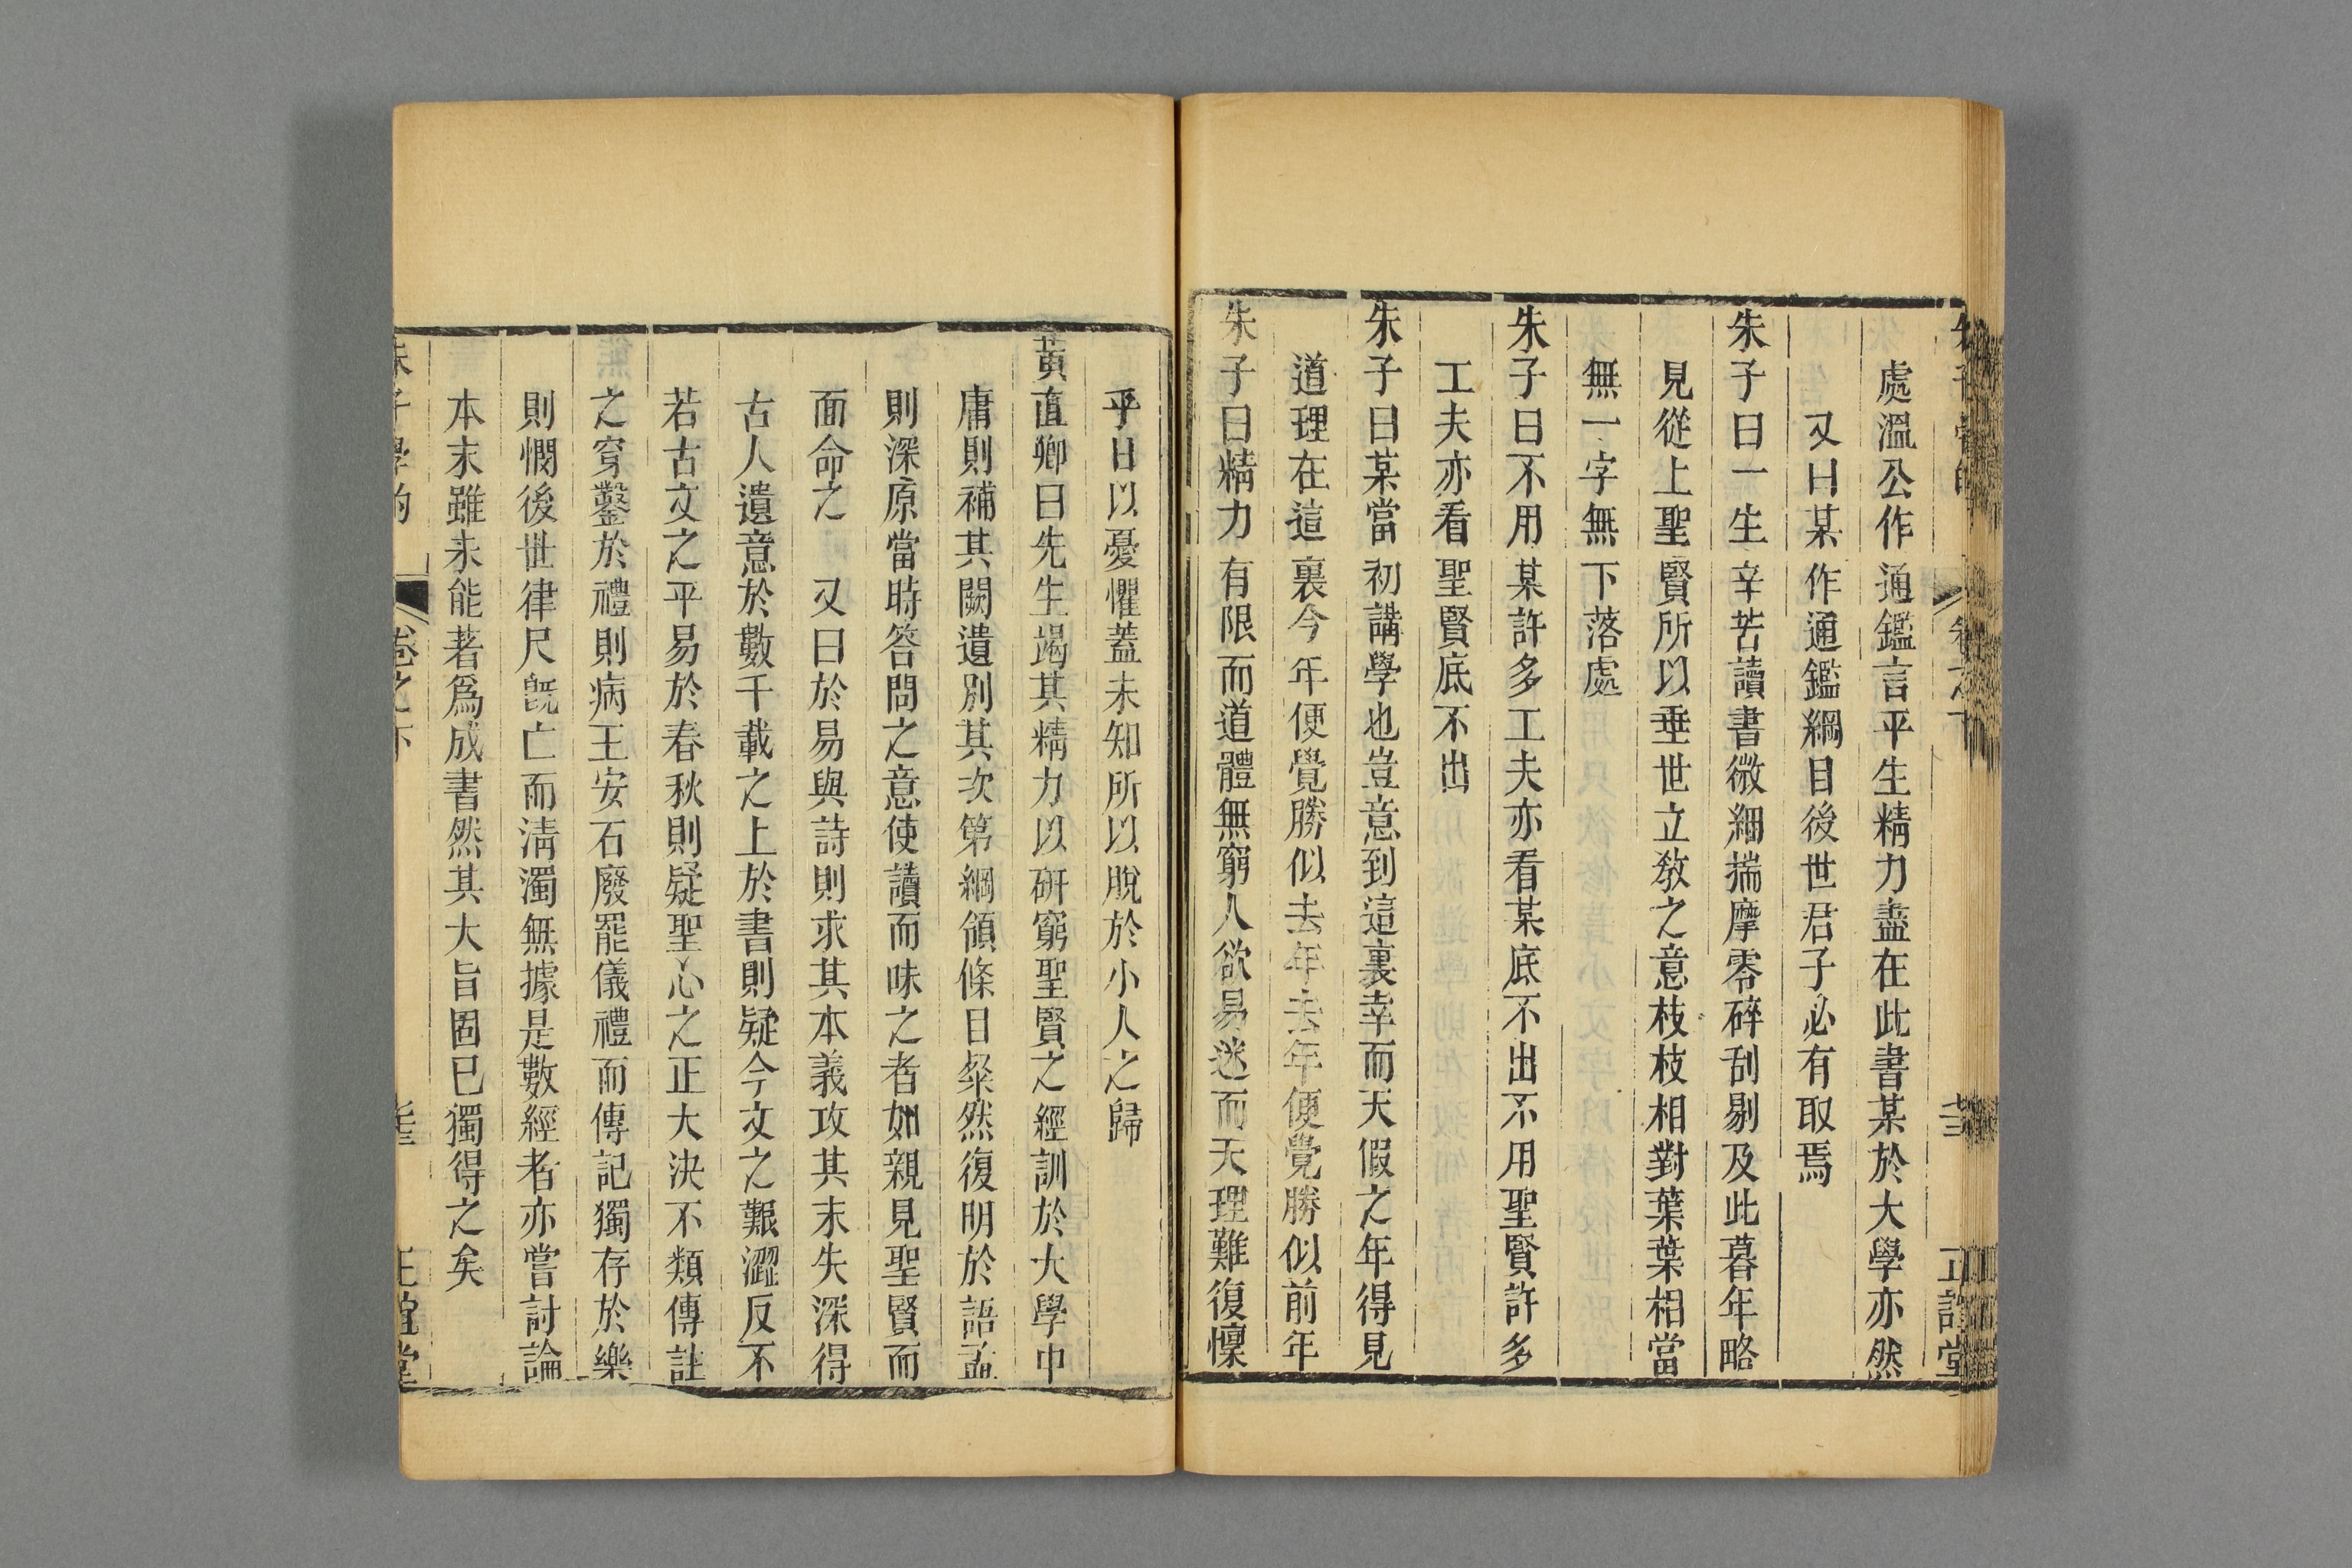 處溫公作通鑑言平生精力盡在此書某於大學亦然
又曰某作通鑑綱目後世君子必有取焉
朱子曰一生辛苦讀書微細揣摩零碎刮剔及此暮年略
見從上聖賢所以垂世立敎之意枝枝相對葉葉相當
無一字無下落處
朱子曰不用某許多工夫亦看某底不出不用聖賢許多
工夫亦看聖賢底不出
朱子曰某當初講學也豈意到這裏幸而天假之年得見
道理在這裏今年便覺勝似去年去年便覺勝似前年
朱子曰精力有限而道體無窮人欲易迷而天理難復懍
乎日以憂懼蓋未知所以脫於小人之歸
黃直卿曰先生竭其精力以硏窮聖賢之經訓於大學中
庸則補其闕遺別其次第綱領條目粲然復明於語孟
則深原當時答問之意使讀而味之者如親見聖賢而
面命之　又曰於易與詩則求其本義攻其末失深得
古人遺意於數千載之上於書則疑今文之艱澀反不
若古文之平易於春秋則疑聖心之正大決不類傳註
之穿鑿於禮則病王安石廢罷儀禮而傳記獨存於樂
則憫後世律尺旣亡而淸濁無據是數經者亦嘗討論
本末雖未能著爲成書然其大旨固已獨得之矣
朱子學的　卷之下　正誼堂